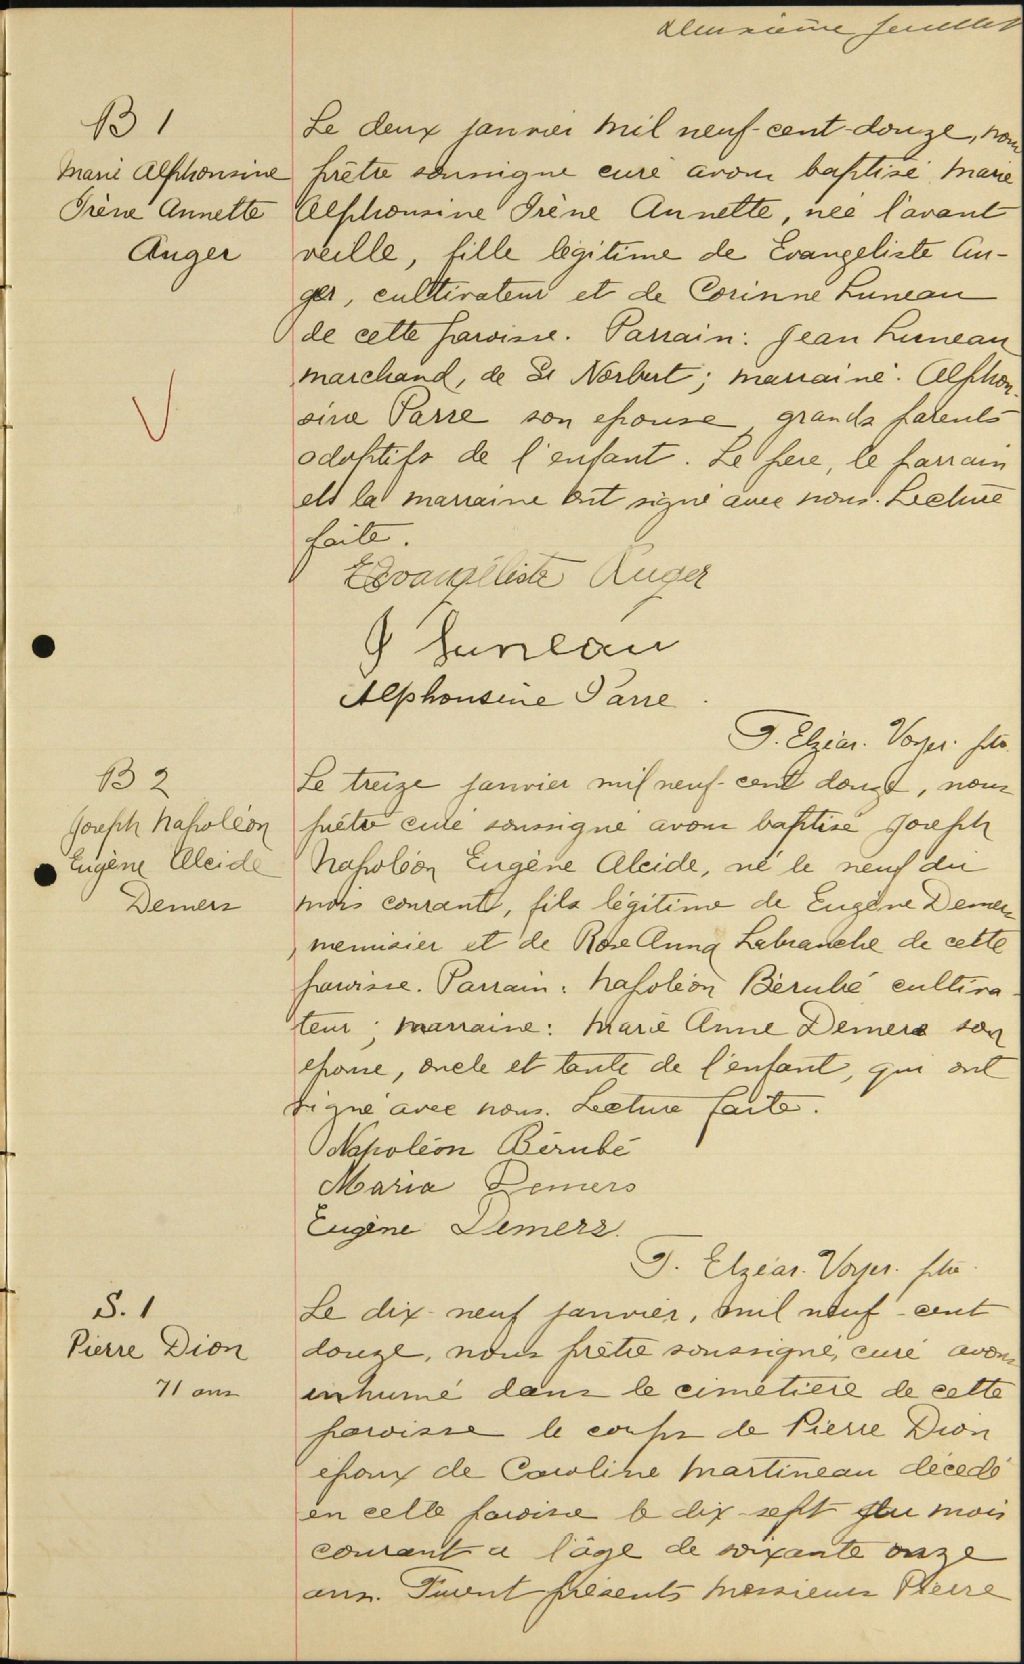 deuxième feuillet
B 1
Marie Alphonsine
Irène Annette
Auger
Le deux janvier mil neuf-cent-douze, nous
prêtre soussigné curé avons baptisé Marie
Alphonsine Irène Annette, née l'avant
veille, fille légitime de Evangéliste Au-
ger, cultivateur et de Corinne Luneau
de cette paroisse. Parrain: Jean Luneau
marchand, de St Norbert; marraine: Alphon-
sine Parre son epouse, grands parents
adoptifs de l'enfant. Le père, le parrain
et la marraine ont signé avec nous. Lecture
faite.
Evangéliste Auger
J Luneau
Alphonsine Parre.
F. Elzéar. Voyer. ptre
B 2
Joseph Napoléon
Eugène Alcide
Demers
Le treize janvier mil neuf-cent douze, nous
prêtre curé soussigné avons baptisé Joseph
Napoléon Eugène Alcide, né le neuf du
mois courant, fils légitime de Eugène Demers
, menuisier et de Rose Anna Labranche de cette
paroisse. Parrain: Napoléon Bérubé cultiva-
teur; marraine: Marie Anne Demers son
epouse, oncle et tante de l'enfant, qui ont
signé avec nous. Lecture faite.
Napoléon Bérubé
Maria Demers
Eugène Demers.
F. Elzéar. Voyer. ptre.
S. 1
Pierre Dion
71 ans
Le dix-neuf janvier, mil neuf-cent
douze, nous prêtre soussigné, curé avons
inhumé dans le cimetière de cette
paroisse le corps de Pierre Dion
époux de Caroline Martineau décédé
en cette paroisse le dix-sept du mois
courant a l'âge de soixante onze
ans. Furent présents Messieurs Pierre